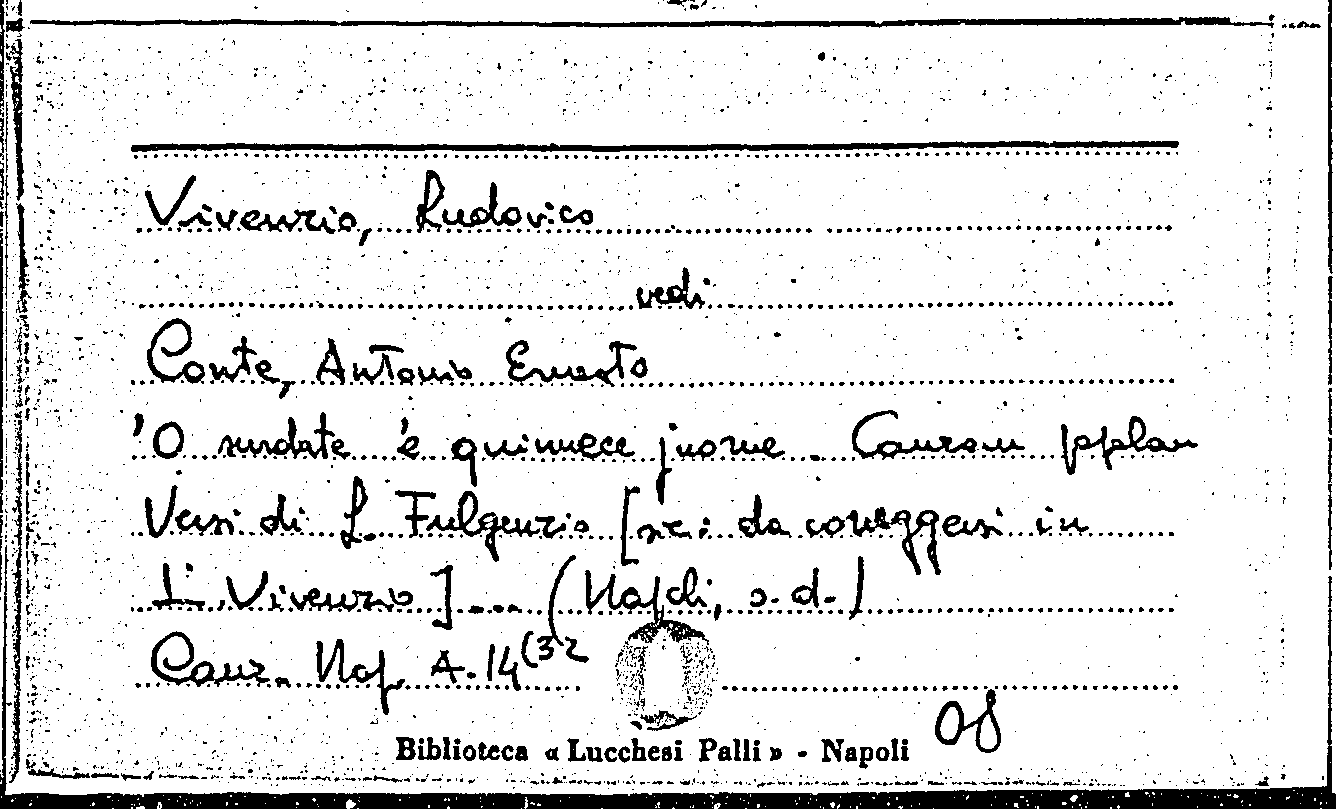 Vivenzio, Ludovico
vedi
Conte, Antonio Ernesto
'O surdate 'e quinnece juorne. Canzon
Versi di L. Fulgenzio [sic: da correggersi in
L. Vivenzio] ... (Napoli, s.d.)
Canz. Nap. A.14(32
Biblioteca « Lucchesi Palli » - Napoli